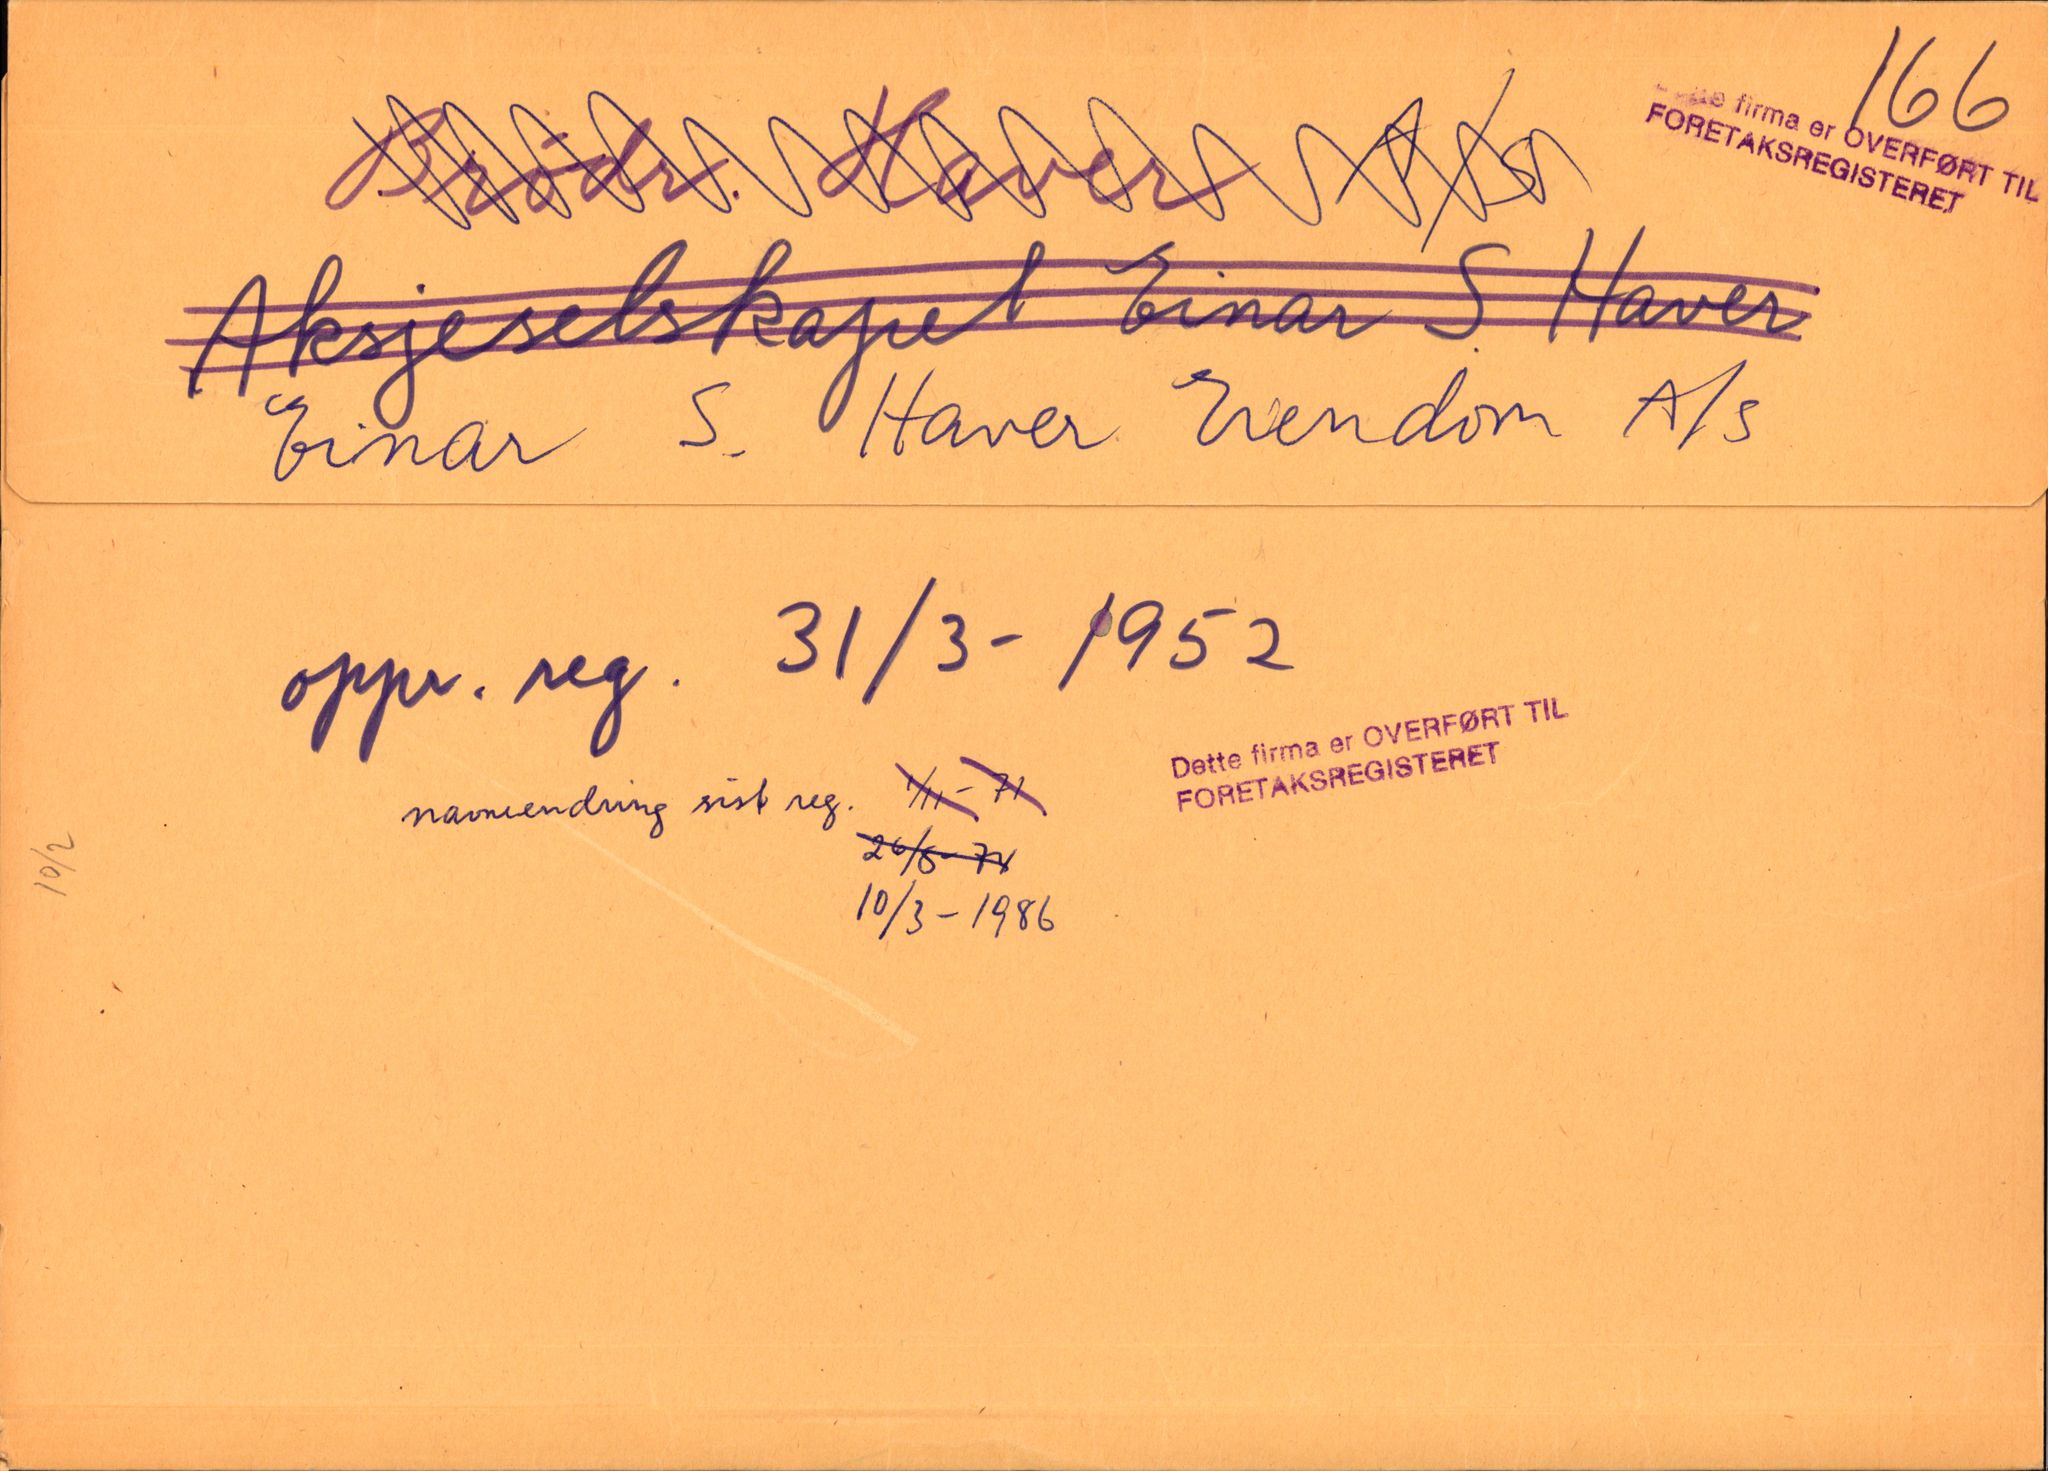 166
Dette firma er OVERFØRT TIL
FORETAKSREGISTERET
Brødr. Haver A/S
Aksjeselskapet Einar S. Haver
Einar S. Haver Eiendom A/S
oppr. reg. 31/3 - 1952
Dette firma er OVERFØRT TIL
FORETAKSREGISTERET
navneendring sist reg. 1/11 - 71
10/3 - 1986
10/2